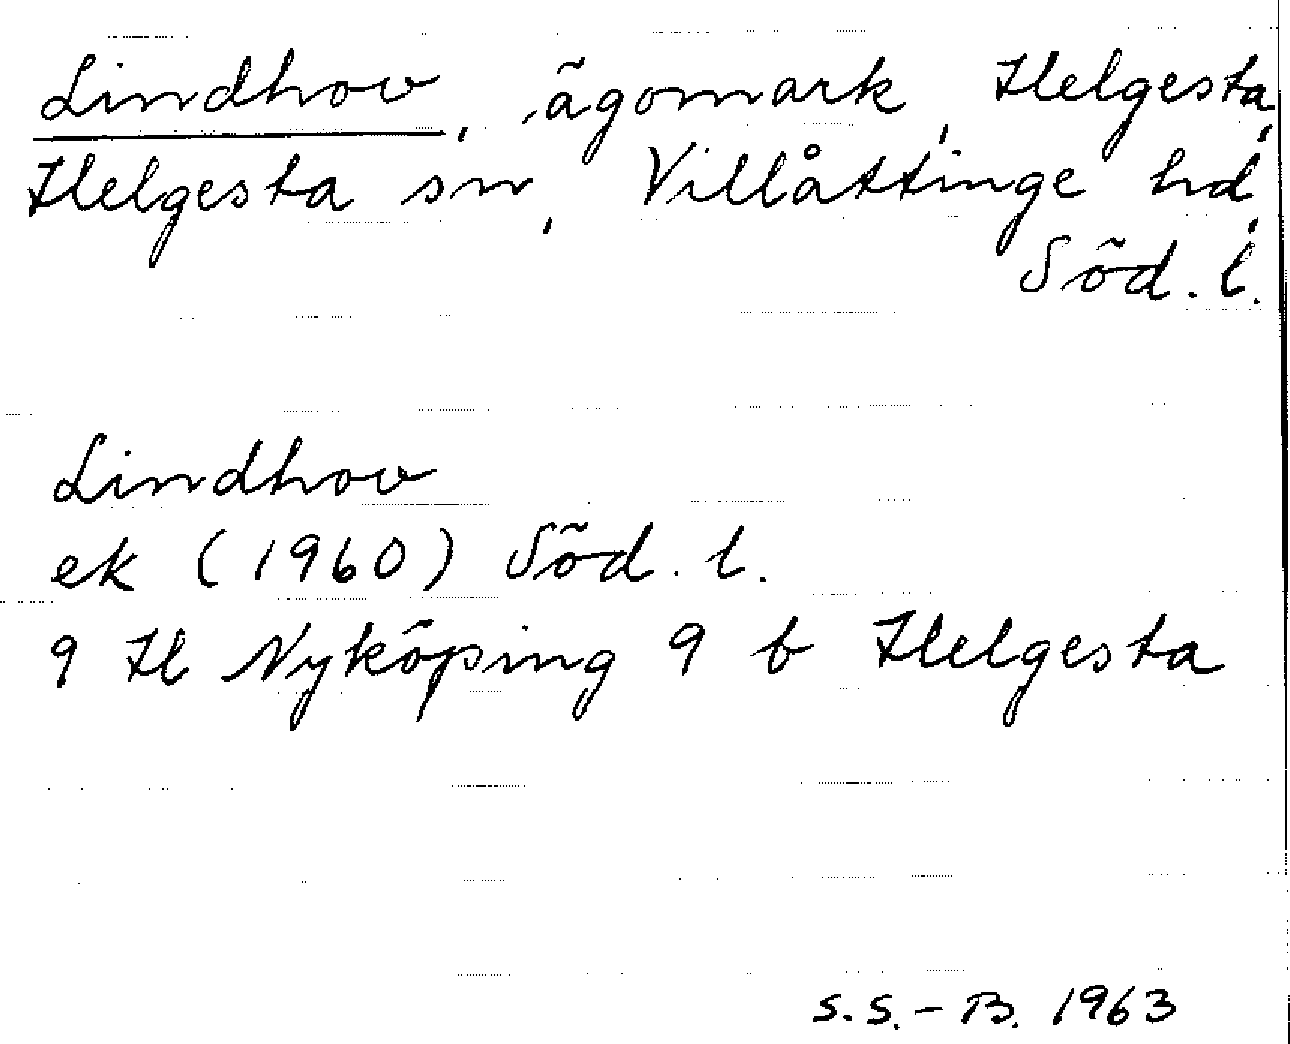 Lindhov, ägomark, Helgesta,
Helgesta sn, Villåttinge hd,
Söd. l.
Lindhov
ek (1960) Söd. l.
9 H Nyköping 9 b Helgesta
S.S.-B. 1963